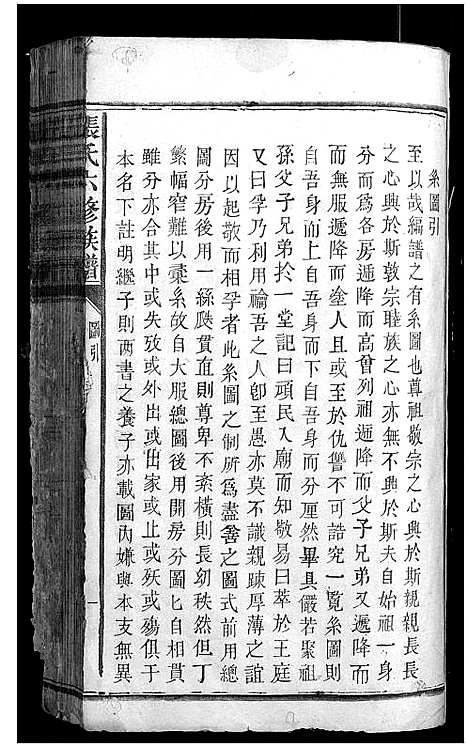 系圖引
至以哉編譜之有系圖也尊祖敬宗之心興於斯親親長長
之心興於斯敦宗睦族之心亦無不興於斯夫自始祖一身
分而爲各房遞降而高曾列祖遞降而父子兄弟又遞降而
而無服遞降而塗人且或至於仇讐不可詰究一覽系圖則
自吾身而上自吾身而下自吾身而分厘然畢具儼若聚祖
孫父子兄弟扵一堂記曰頑民入廟而知敬易曰萃於王庭
又曰孚乃利用禴吾之人卽至愚亦莫不識親踈厚薄之誼
因以起敬而相孚者此系圖之制所爲盡善之圖式前用總
圖分房後用一綫貺貫直則尊卑不紊橫則長幼秩然但丁
繁幅窄難以彙系故自大服總圖後用開房分圖匕自相貫
雖分亦合其中或失攷或外出或出家或止或殀或殤俱于
本名下註明繼子則两書之養子亦載圖内嫌與本支無異
張氏六修族譜
圖引
一